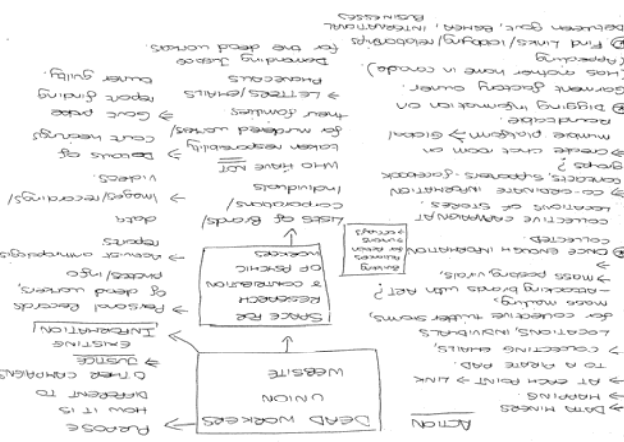 ACTION
→ DATA MINERS
→ MAPPING.
AT EACH POINT → LINK
TO A RATE PAD.
→ COLLECTING EMAILS,
LOCATIONS, INDIVIDUALS
for collective twitter storms,
mass mailing,
- Attacking brands with ART?
→ mass posting, virals,
→
ONCE ENOUGH INFORMATION
COLLECTED.
COLLECTIVE CAMPAIGN AT
LOCATIONS OF STORES.
→ CO-ORDINATE INFORMATION
contacts, supporters. facebook
groups?
→ Create chat room on
mumble platform → Global
Roundtable.
Digging information on
Garment factory owner.
(Has another home in canada).
(Appealing)
Find Links / lobbying / relationships
between govt, BGMEA, INTERNATIONAL
BUSINESSES
DEAD WORKERS
UNION
WEBSITE
SPACE FOR
RESEARCH
& CONTRIBUTION
OF PSYCHIC
WORKERS
Building
Alliances
for action
Lists of Brands/
corporations/
Individuals
WHO HAVE NOT
taken responsibility
for murdered workers/
their families
→ LETTERS/EMAILS
PHONECALLS
Demanding Justice
for the dead workers.
PURPOSE
HOW IT IS
DIFFERENT TO
OTHER CAMPAIGNS
→ JUSTICE
EXISTING
INFORMATION
→ Personal Records
of dead workers,
photos/info
→ Activist anthropologist
reports
data
→ Images/recordings/
videos.
→ Details of
court hearings
→ Govt probe
report finding
owner guilty.